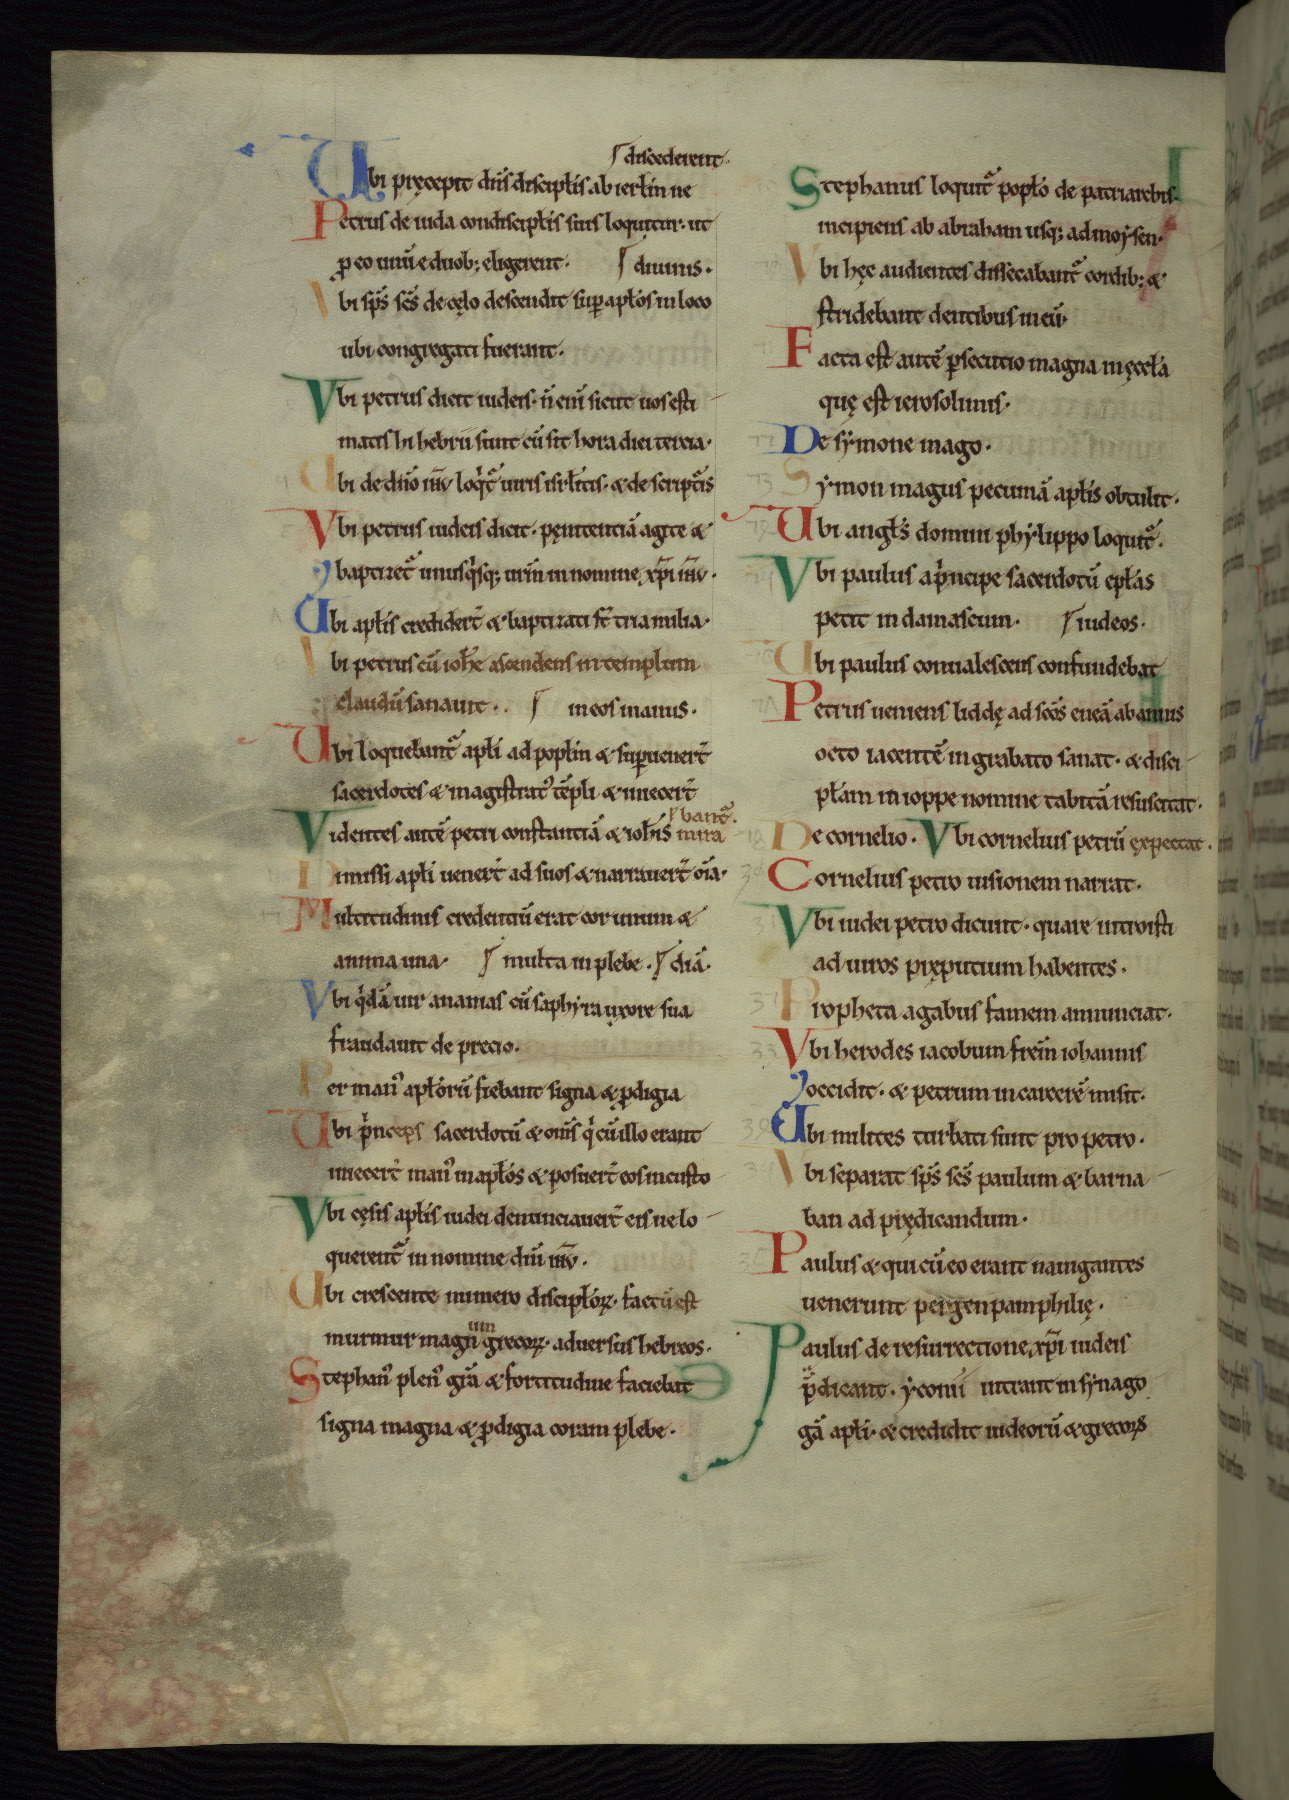 ⌈discederent.
Vbi pręcepit dn̄s discipl̄is ab ierl̄m ne
Petrus de iuda condiscipl̄is suis loquitur. ut
ꝓ eo unū e duob; eligerent. ⌈ diuinis.
Vbi sp̄s sc̄s de cęlo descendit suꝑ apl̄os in loco
ubi congregati fuerant.
Vbi petrus dicit iudeis. n̄ eni̅ sicut uos esti
matis hi hebrii sunt cū sit hora diei tercia.
Vbi de dn̄o ihv̄ loq̇t̄ uiris isrl̄itis. & de scriptis
Vbi petrus iudeis dicit. pęnitentiā agite &
baptizet̄ unusq̇sq; ur̄m in nomine xp̄i ihv̄.
Vbi apl̄is credider̄t & baptizati st̄ tria milia.
Vbi petrus cū ioh̄e ascendens in templum
claudū sanauit.. ⌈ in eos manus.
Vbi loquebant̄ apl̄i ad popl̄m & suꝑuener̄t
sacerdotes & magistrat᾽ tēpli & iniecer̄t
⌈bant̄.
Videntes autē petri constantiā & ioh̄is mira
Dimissi apl̄i uener̄t ad suos & narrauer̄t oīa.
Multitudinis credentiū erat cor unum &
anima una. ⌈ multa in plebe. ⌈ diā.
Vbi q̇dā uir ananias cū saphyra uxore sua
fraudauit de precio.
Per man᾽ apl̄orū fiebant signa & ꝓdigia
Vbi ṗnceps sacerdotū & om̄s q̇ cū illo erant
iniecer̄t man᾽ in apl̄os & posuer̄t eos in custo
Vbi cęsis apl̄is iudei denunciauer̄t eis ne lo
querent̄ in nomine dn̄i ihv̄.
Vbi crescente numero discipl̄oꝝ. factū est
um
murmur magn̄ grecoꝝ. aduersus hebreos.
Stephan᾽ plen᾽ gr̄a & fortitudine faciebat
signa magna & ꝓdigia coram plebe.
Stephanus loquit̄ popl̄o de patriarchis.
incipiens ab abraham usq; ad moysen.
Vbi hęc audientes dissecabant̄ cordib; &
stridebant dentibus in eū.
Facta est autē ꝑsecutio magna in ęccl̄a
quę est ierosolimis.
De symone mago.
Symon magus pecuniā apl̄is obtulit.
Vbi angl̄s domini phylippo loquit̄.
Vbi paulus a ṗncipe sacerdotū epl̄as
petit in damascum. ⌈iudeos.
Vbi paulus conualescens confundebat
Petrus ueniens liddę ad sc̄os eneā ab annis
octo iacentē in grabato sanat. & disci
pl̄am in ioppe nomine tabitā resuscitat.
De cornelio. Vbi cornelius petrū expectat.
Cornelius petro uisionem narrat.
Vbi iudei petro dicunt. quare introisti
ad uiros pręputium habentes.
Propheta agabus famem annunciat.
Vbi herodes iacobum fr̄em iohannis
occidit. & petrum in carcerē misit.
Vbi milites turbati sunt pro petro.
Vbi separat sp̄s sc̄s paulum & barna
ban ad prędicandum.
Paulus & qui cū eo erant nauigantes
uenerunt pergen pamphilię.
Paulus de resurrectione xp̄i iudeis
p̄dicant. yconii intrant in synago
gā apl̄i. & credidit iudeorū & grecoꝝ